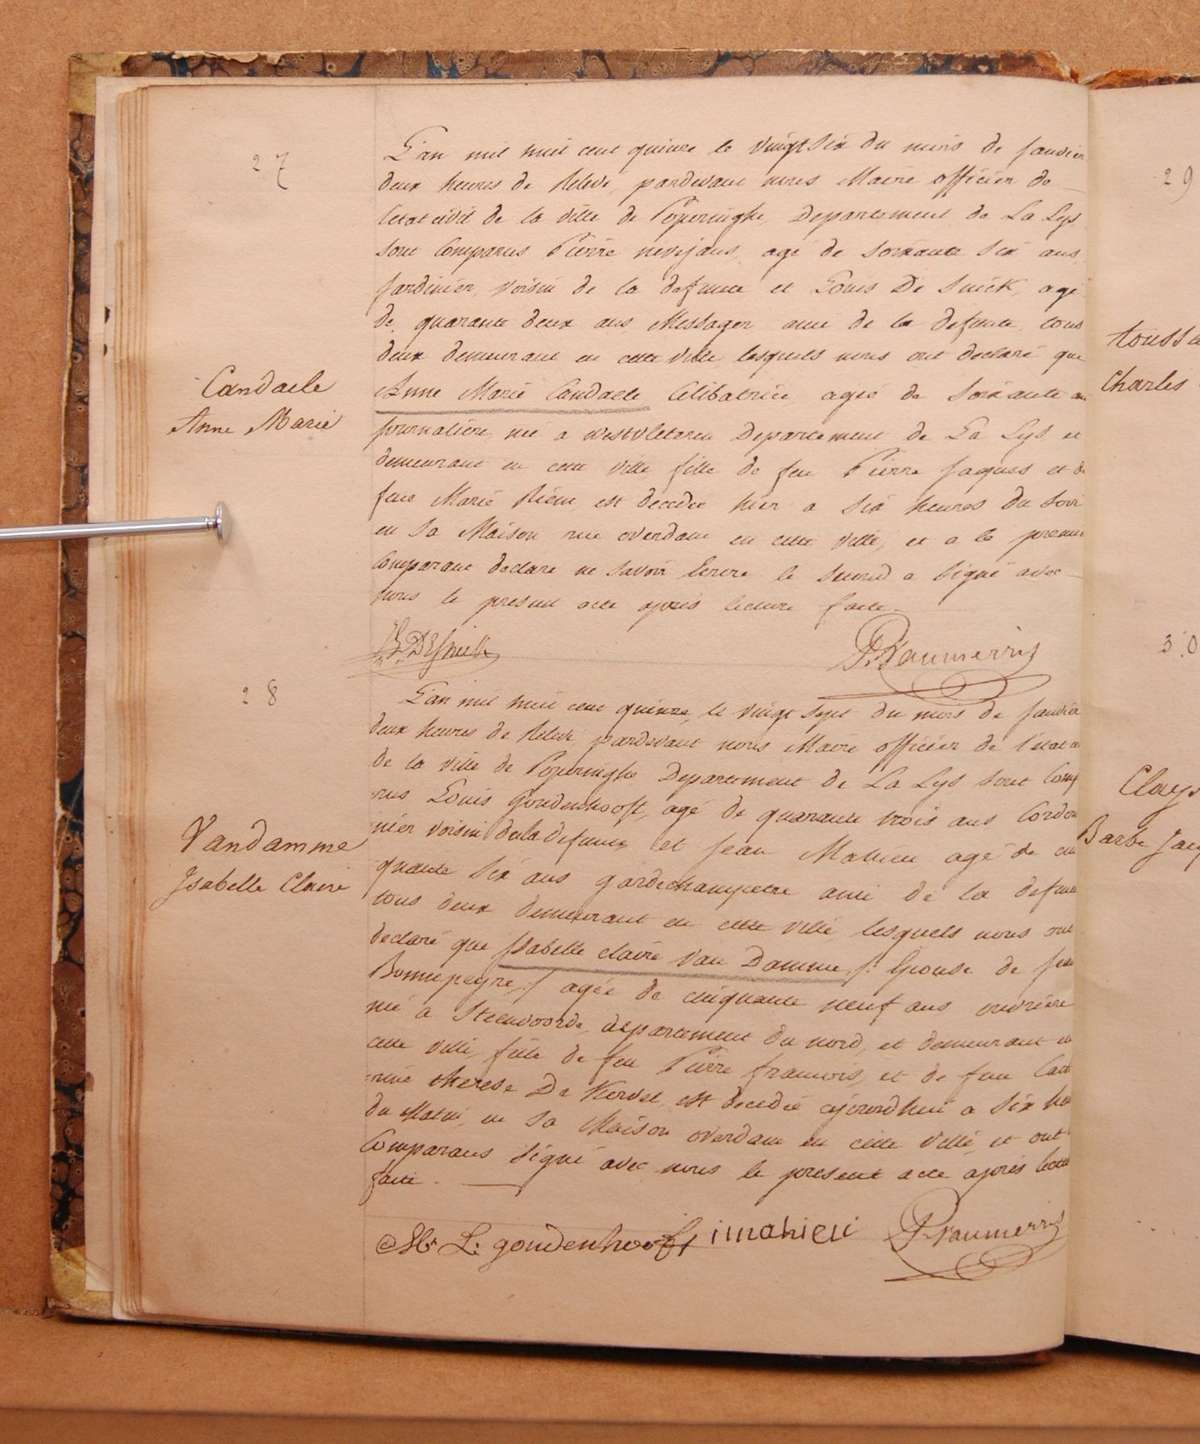 27
L'an mil huit cent quinze le vingt six du mois de Janvier
deux heures de Relevé, pardevant nous Maire officier de
l'etat civil de la ville de Poperinghe, Departement de La Lys
sont Comparus Pierre agé de soixante six ans
Jardinier, voisin de la defunte et Louis De Snick, agé
de quarante deux ans Messager ami de la defunte, tous
deux demeurant en cette ville lesquels nous ont declaré que
Candaele
Anne Marie
Anne Marie Candaele Celibatrice, agée de soixante
journaliere, né a westvleteren Departement de La Lys et
demeurant en cette ville fille de feu Pierre Jaques et de
feue Marie est decedée hier a six heures du soir
en sa Maison rue overdam en cette ville, et a le premier
Comparant declaré ne savoir Ecrire le second a signé avec
nous le present acte après lecture faite.
28
L'an mil huit cent quinze, le vingt sept du mois de Janvier
deux heures de Relevé pardevant nous Maire officier de l'etat
de la ville de Poperinghe Departement de La Lys sont Comp
rus Louis Goudenhooft, agé de quarante trois ans Cordon
nier voisin de la defunte, et Jean Mahieu agé de cin
Vandamme
Isabelle Claire
quante six ans gardechampetre ami de la defunte
tous deux demeurant en cette ville lesquels nous ont
declaré que Isabelle claire Van Damme /: Epouse de
Bonnepeyre :/ agée de cinquante neuf ans ouvrière
né a Steenvoorde, departement du nord, et demeurant en
cette ville, fille de feu Pierre francois, et de feue Cath
rine therese De est decedée ajourdhui a six heu
du Matin, en sa Maison overdam en cette ville, et ont
Comparans signé avec nous le present acte après lecture
faite.
L. goudenhooft imahieu
29
Charles
30
Barbe